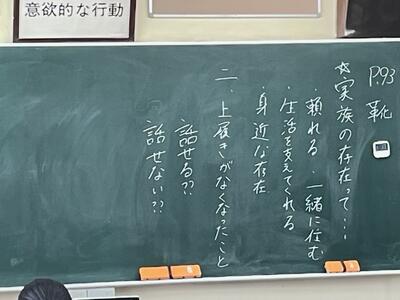 意欲的な行動
P.93 靴
☆家族の存在って…
・頼れる ・一緒に住む
・生活を支えてくれる
・身近な存在
二、上履きがなくなったこと
話せる??
話せない??